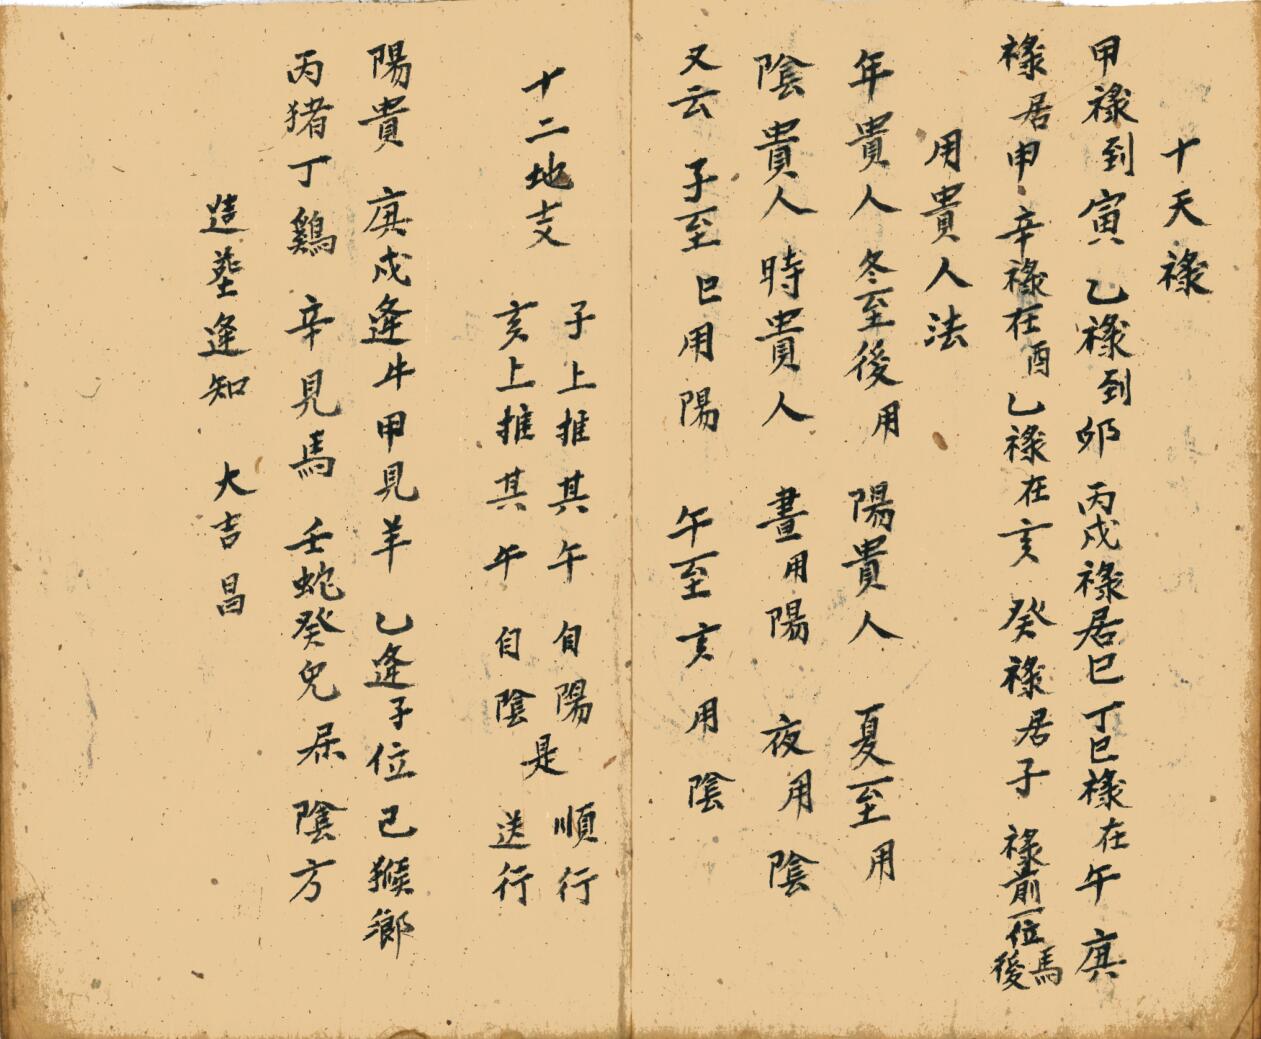 十天祿
甲祿到寅 乙祿到卯 丙戊祿居巳 丁巳祿在午 庚
祿居申 辛祿在酉 乙祿在亥 癸祿居子 祿前一位馬後
用貴人法
年貴人 冬至後用陽貴人 夏至用
陰貴人 時貴人 晝用陽 夜用陰
又云 子至巳用陽 午至亥用陰
十二地支
子上推其午 自陽是順行
亥上推其午 自陰是送行
陽貴 庚戊逢牛甲見羊 乙逢子位己猴鄉
丙猪丁鷄 辛見馬 壬蛇癸兒 陰方
造塟逢知 大吉昌